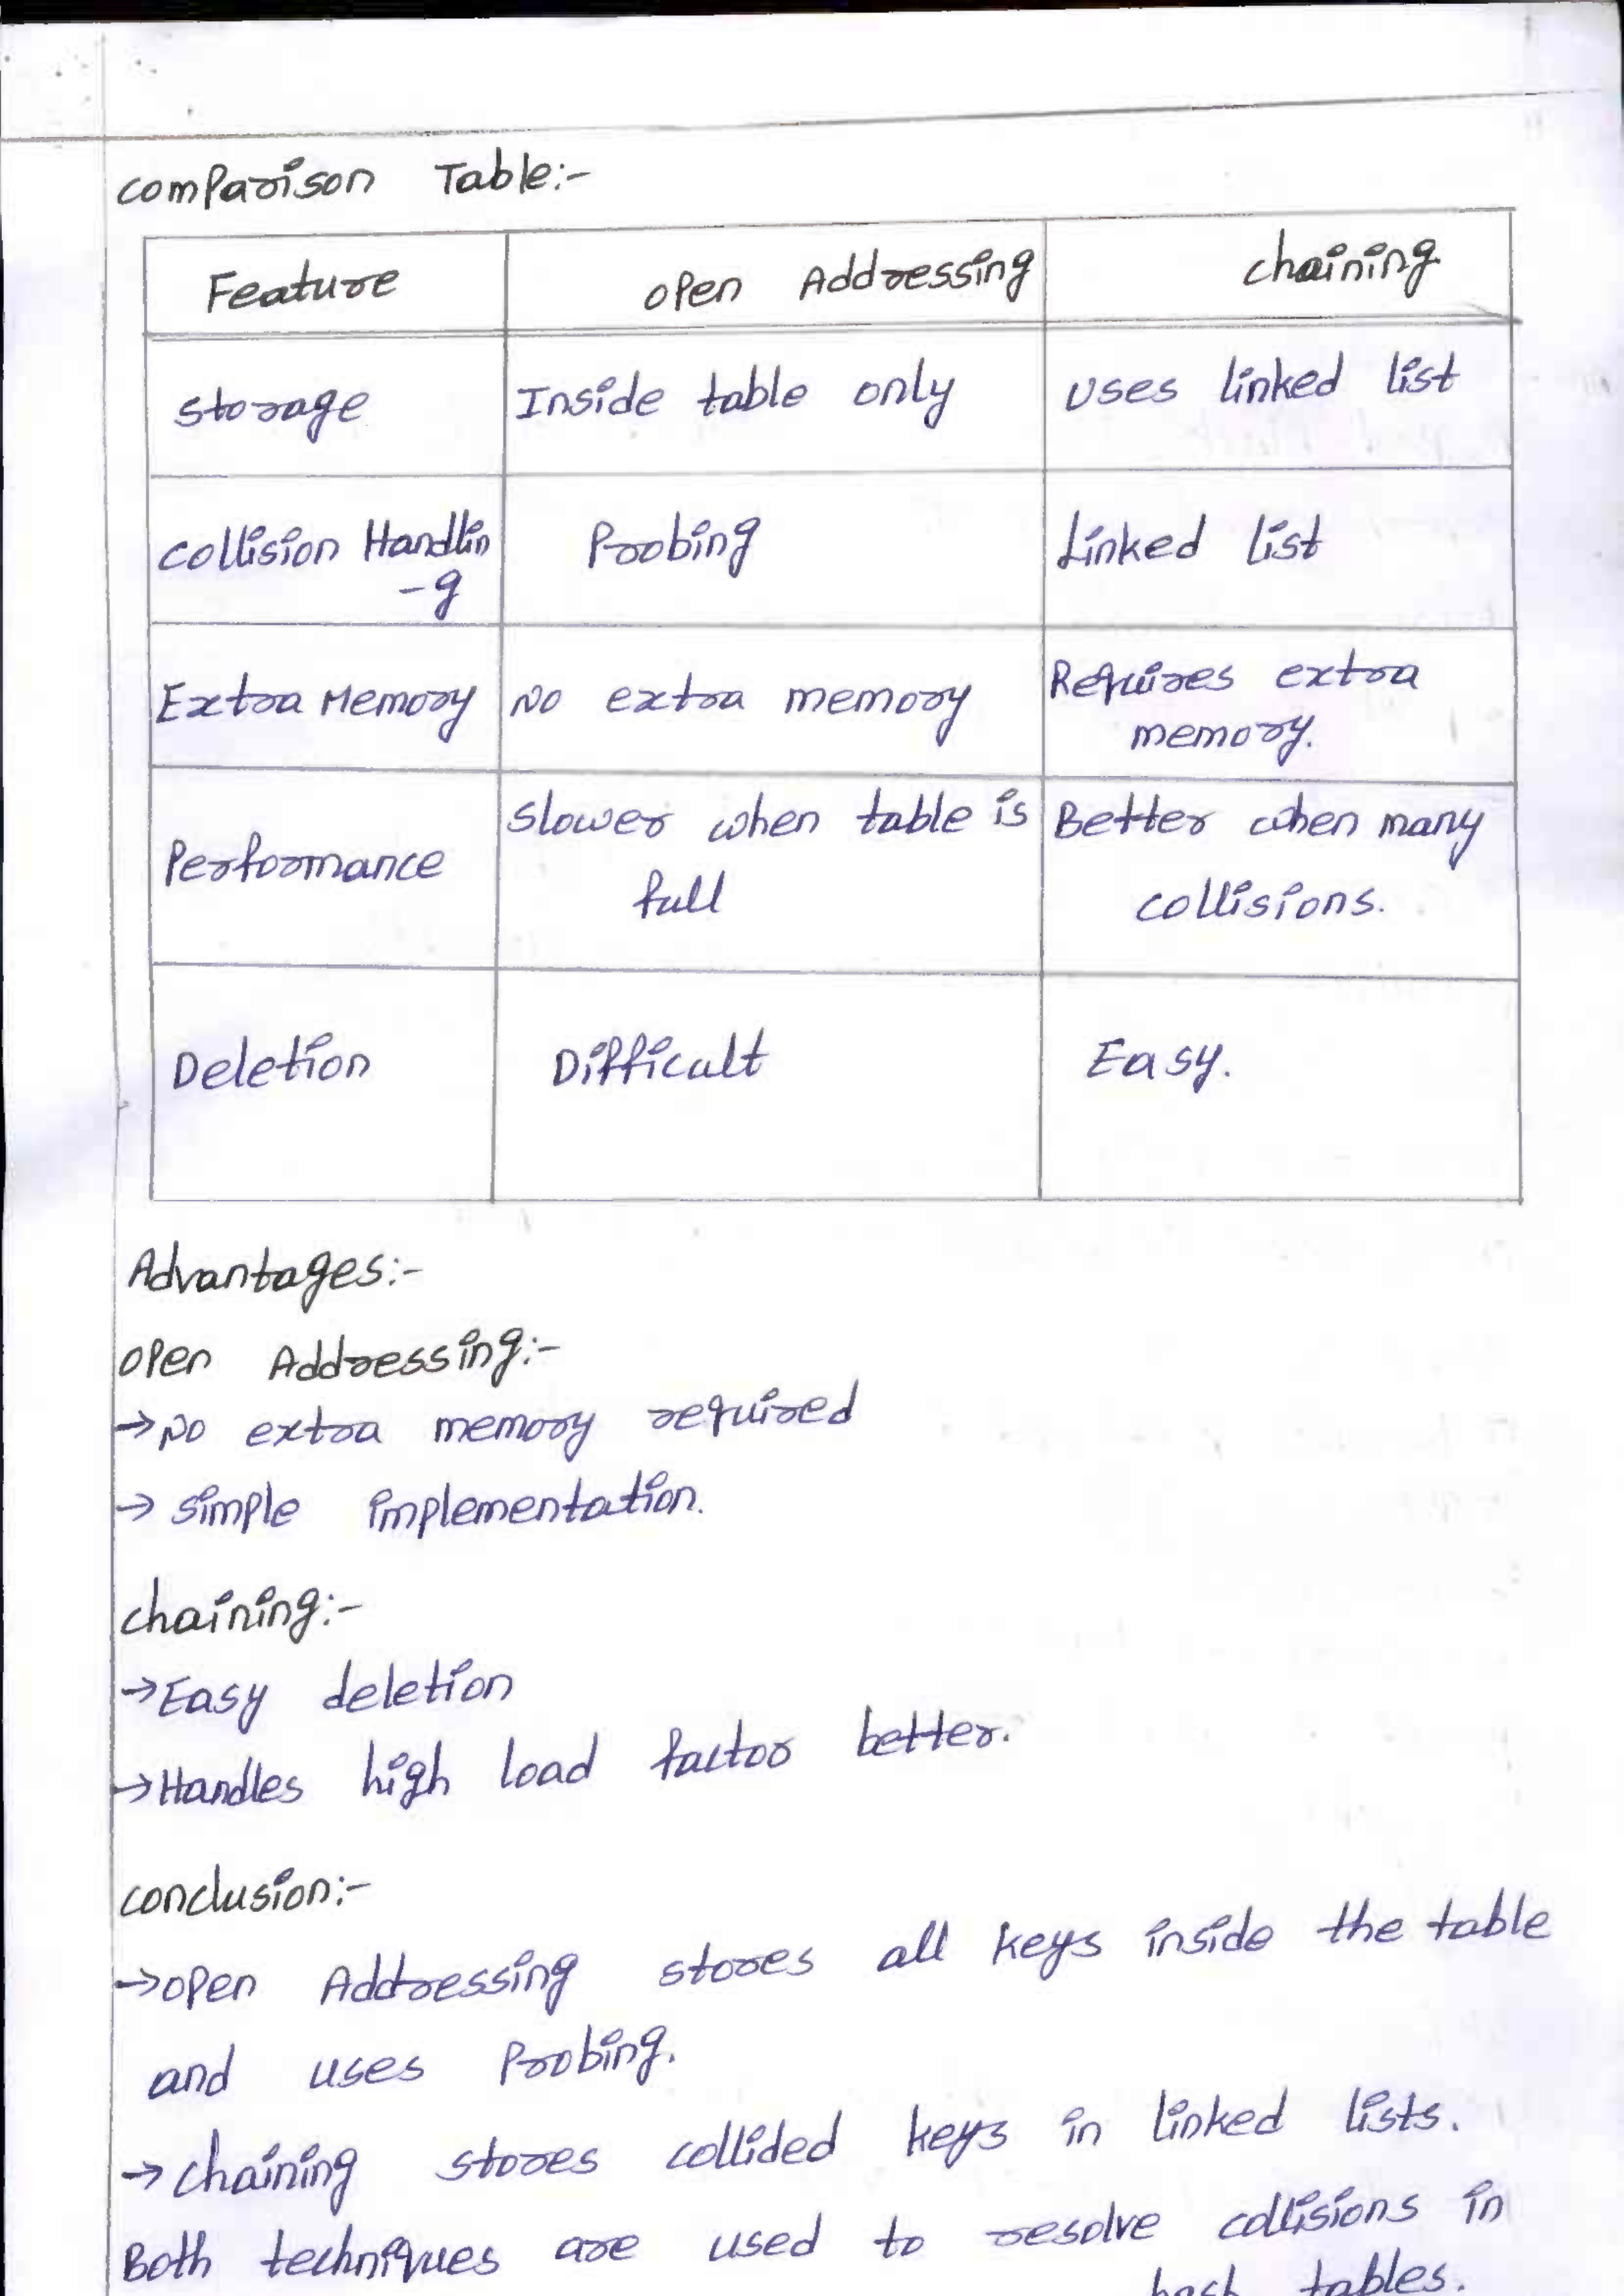 comparison Table:-
Feature open Addressing chaining
storage Inside table only uses linked list
collision Handlin
-g
Probing Linked list
Extra Memory No extra memory Requires extra
memory.
Performance
Slower when table is
full
Better when many
collisions.
Deletion Difficult Easy.
Advantages:-
open Addressing:-
→No extra memory required
→ simple implementation.
chaining:-
→Easy deletion
→Handles high load factor better.
conclusion:-
→open Addressing stores all keys inside the table
and uses Probing.
→ chaining stores collided keys in linked lists.
Both techniques are used to resolve collisions in
hash tables.